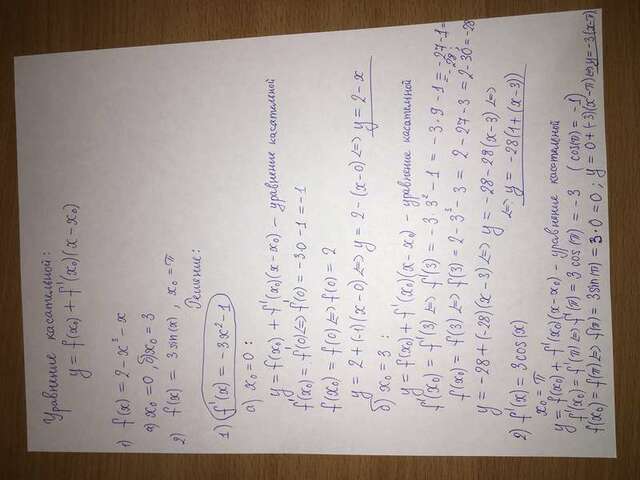 Уравнение касательной:
y = f(x₀) + f'(x₀)(x - x₀)
1) f(x) = 2 - x³ - x
а) x₀ = 0, б) x₀ = 3
2) f(x) = 3 sin(x), x₀ = π
Решение:
1) f'(x) = -3x² - 1
а) x₀ = 0 :
y = f(x₀) + f'(x₀)(x - x₀) - уравнение касательной
f'(x₀) = f'(0) <=> f'(0) = -3·0 - 1 = -1
f(x₀) = f(0) <=> f(0) = 2
y = 2 + (-1)(x - 0) <=> y = 2 - (x - 0) <=> y = 2 - x
б) x₀ = 3 :
y = f(x₀) + f'(x₀)(x - x₀) - уравнение касательной
f'(x₀) = f'(3) <=> f'(3) = -3·3² - 1 = -3·9 - 1 = -27 - 1 =
= -28;
f(x₀) = f(3) <=> f(3) = 2 - 3³ - 3 = 2 - 27 - 3 = 2 - 30 = -28
y = -28 + (-28)(x - 3) <=> y = -28 - 28(x - 3) <=>
<=> y = -28(1 + (x - 3))
2) f'(x) = 3 cos(x)
x₀ = π
y = f(x₀) + f'(x₀)(x - x₀) - уравнение касательной
f'(x₀) = f'(π) <=> f'(π) = 3 cos(π) = -3 (cos(π) = -1)
f(x₀) = f(π) <=> f(π) = 3 sin(π) = 3·0 = 0; y = 0 + (-3)(x - π) <=> y = -3(x - π)